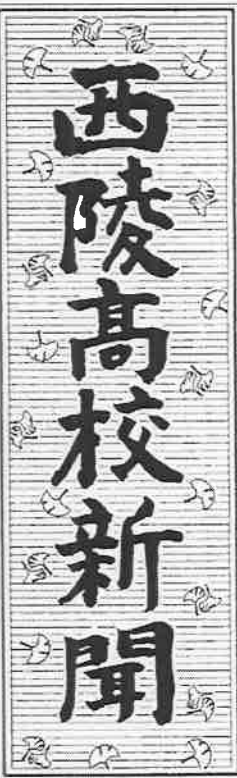 西陵髙校新聞